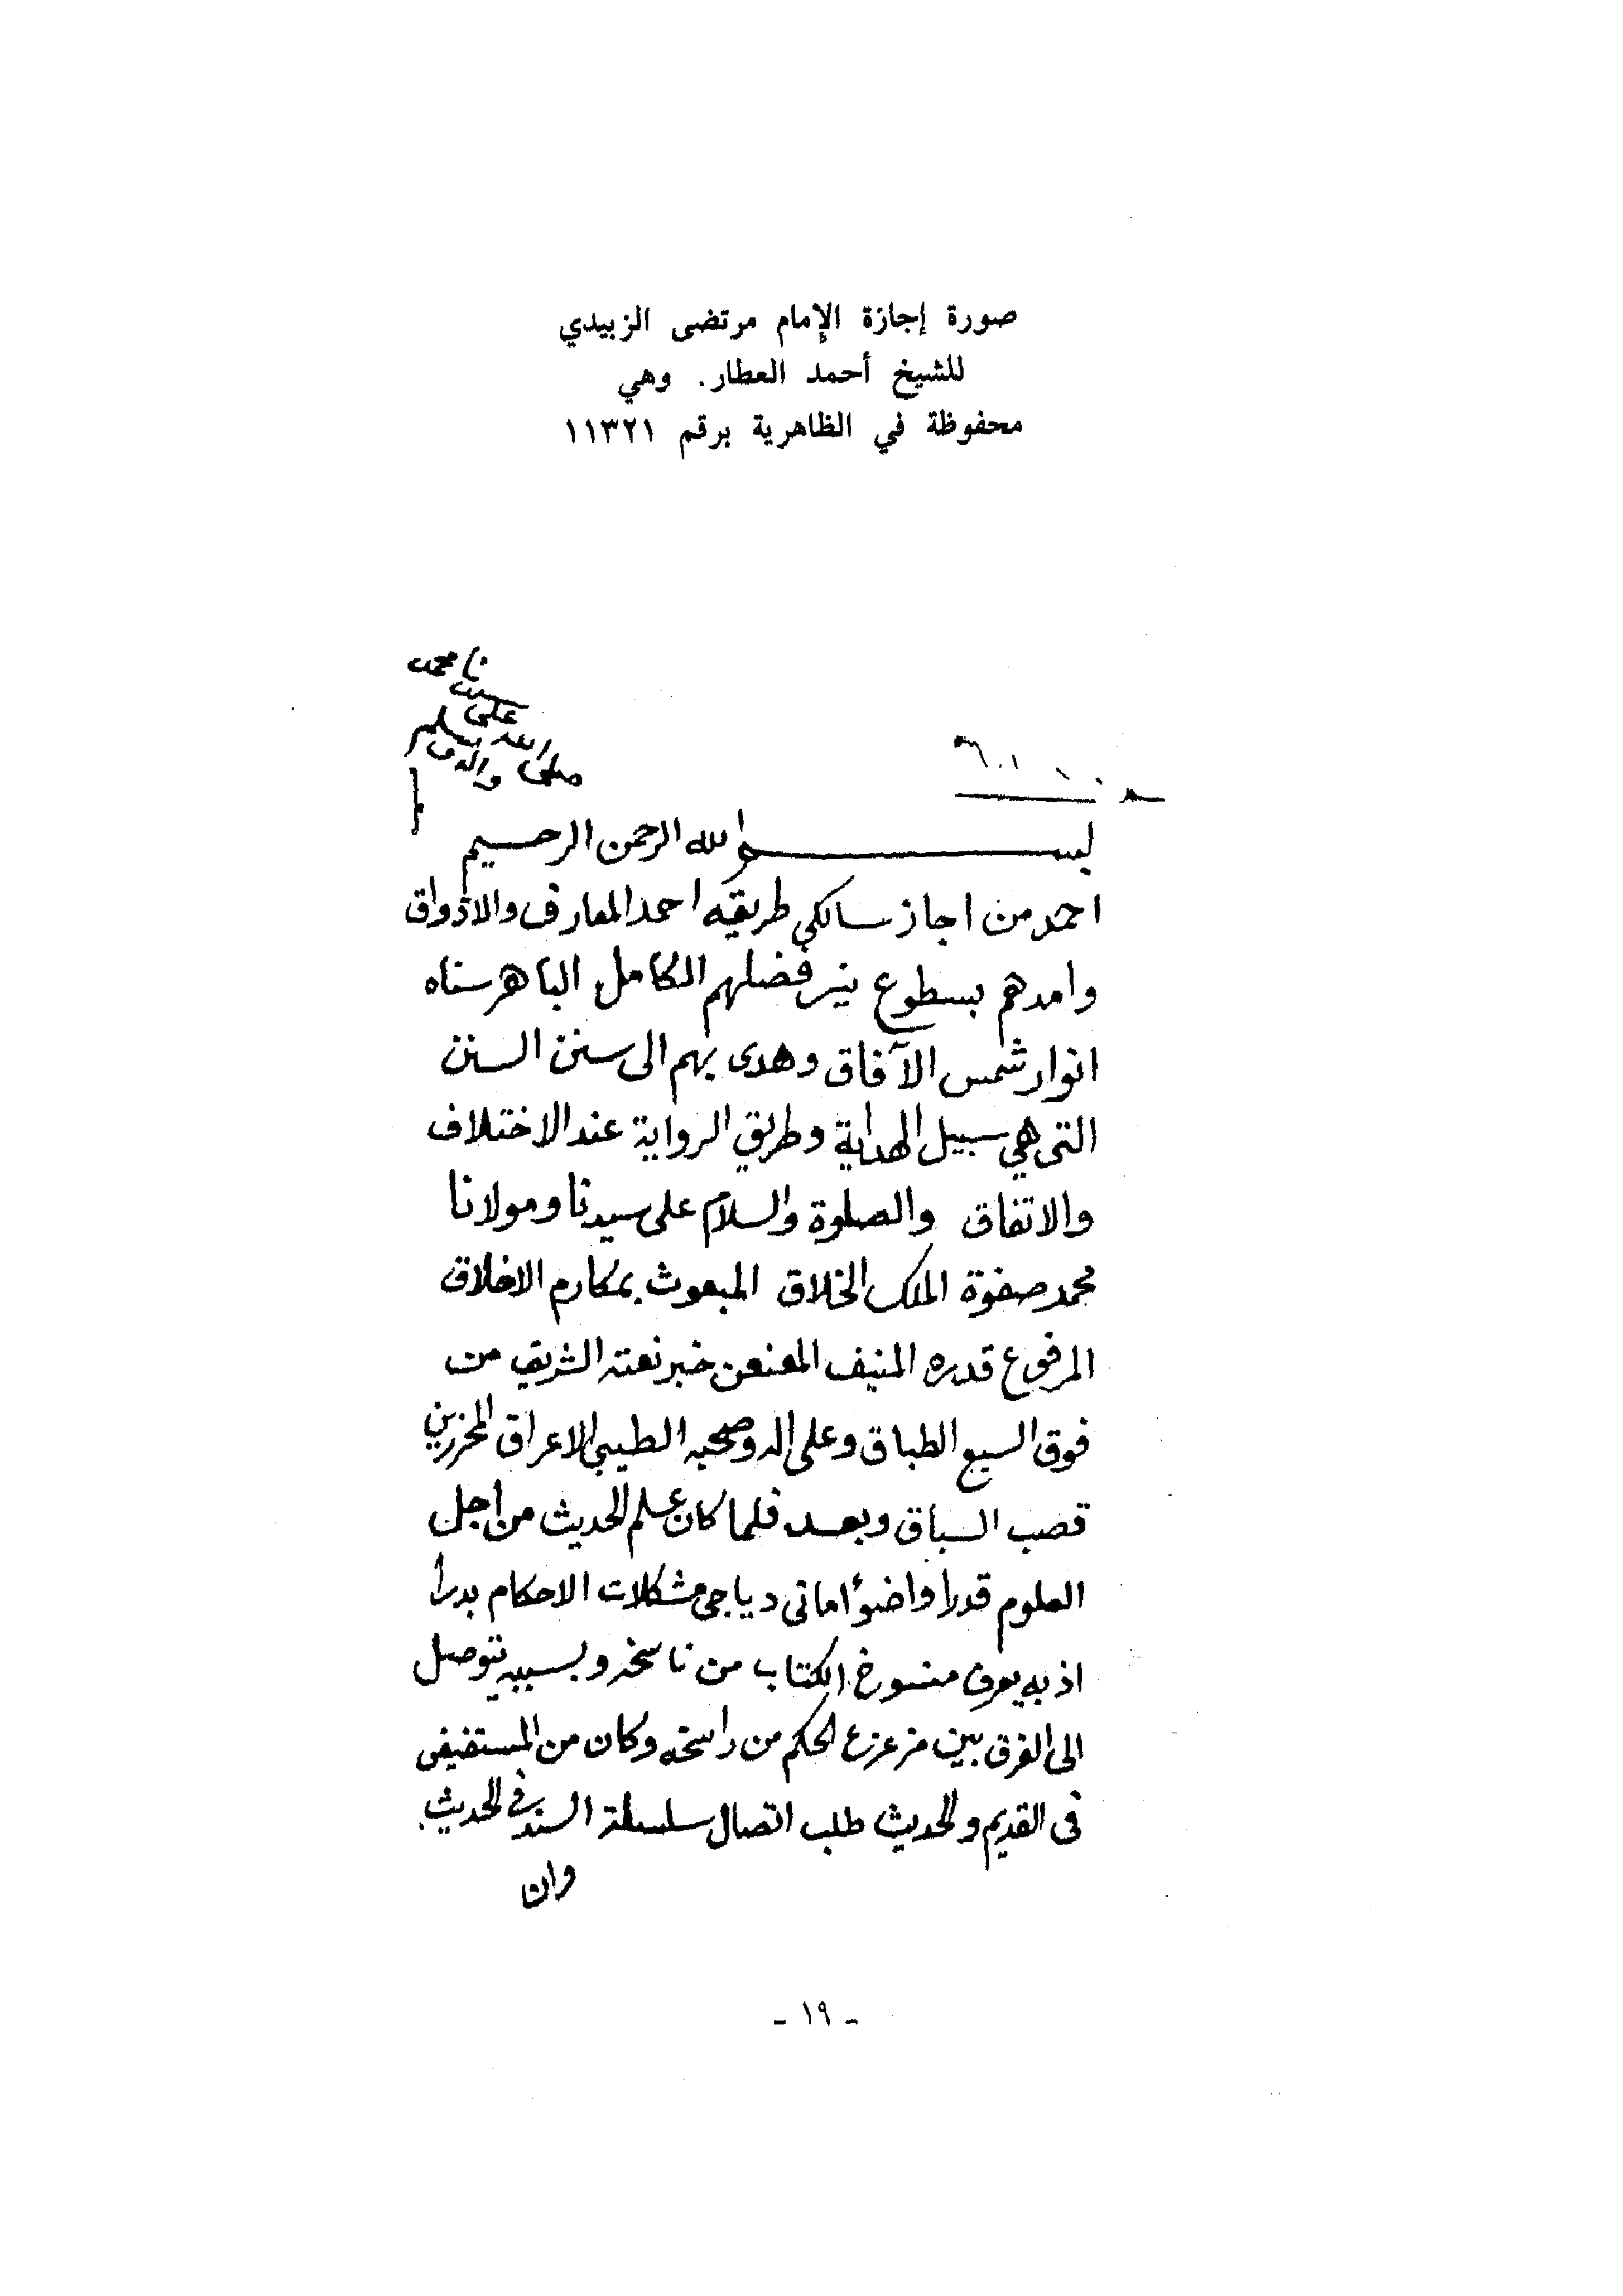 صورة إجازة الإمام مرتضى الزبيدي
للشيخ أحمد العطار. وهي
محفوظة في الظاهرية برقم ١١٣٢١
بسم الله الرحمن الرحيم
احمد من اجاز سالكي طريقه احمد المعارف والاذواق
وامدهم بسطوع نير فضلهم الكامل الباهر سناه
انوار شمس الآفاق وهدى بهم الى سنن السنن
التي هي سبيل الهداية وطريق الرواية عند الاختلاف
والاتفاق والصلوة والسلام على سيدنا ومولانا
محمد صفوة الملك الخلاق المبعوث بمكارم الاخلاق
المرفوع قدره المنيف المعنعن خبر نعته الشريف من
فوق السبع الطباق وعلى اله وصحبه الطيبي الاعراق المحرزين
قصب السباق وبعد فلما كان علم الحديث من اجل
العلوم قدرا واضوأها في دياجي مشكلات الاحكام بدرا
اذ به يعرف منسوخ الكتاب من ناسخه وبسببه يتوصل
الى الفرق بين مزعزع الحكم من راسخه وكان من المستفيض
في القديم والحديث طلب اتصال سلسلة السند في الحديث
وان
- ١٩ -